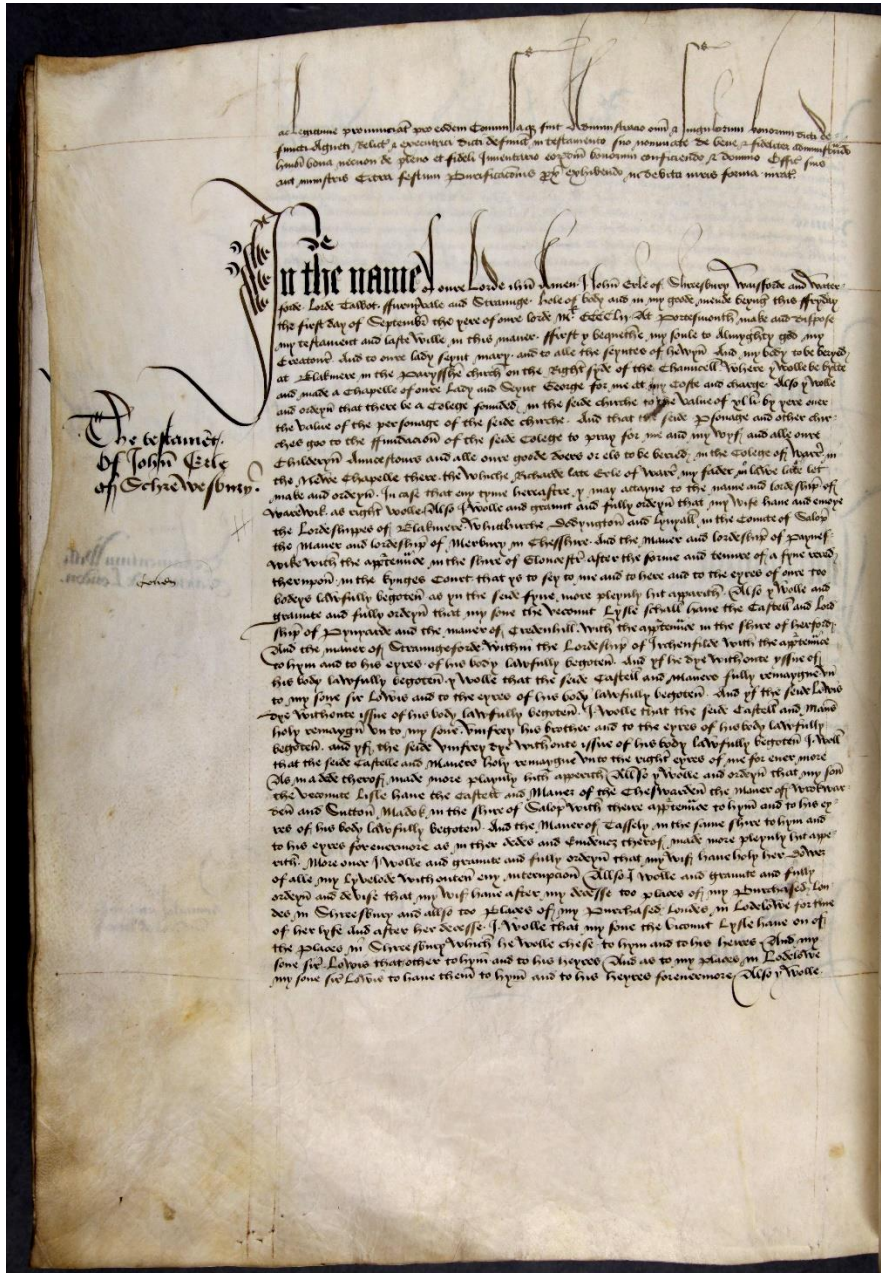 ac legitime pronunciat pro eodem Commissaque fuit Administracio omnium & singulorum bonorum dicti de-
functi Agneti Relicte & executrici dicti defuncti in testamento suo nominate de bene & fideliter administrando
bona necnon de pleno et fideli Inventario bonorum conficiendo & domino
aut ministris Citra festum Purificacionis exhibendo in debita iuris forma iurat
In the name of oure Lorde ihu Amen I John Erle of Shresbury Waisforde and Water-
forde Lorde Talbot ffurnyvale and Straunge hole of body and in my goode mende beyng this ffryday
the first day of Septembr the yere of oure lorde Ml CCCC lij At Portesmouth make and dispose
my testament and laste wille in this maner ffirst y bequethe my soule to Almyghty god my
Creatour And to oure lady seynt mary and to alle the seyntes of hevyn And my body to be beryed
at Blakmere in the Parysshe church on the Right syde of the Chauncell Where y wolle be bylte
and made a Chapelle of oure Lady and Seynt George for me att my Coste and charge Also y wolle
and ordeyn that there be a Colege founded in the seide churche to the value of xl li by yere over
the value of the personage of the seide churche And that the seide Personage and other chir-
ches goo to the ffundacion of the seide Colege to pray for me and my wyf and alle oure
Childeryn Auncestours and alle oure goode doers or els to be beried in the Colege of Warr in
the Newe Chapelle there the whiche Richarde late Erle of Warr my fader in lawe late let
make and ordeyn In case that eny tyme hereaftre y may attayne to the name and lordeship of
Warewik as right wolle Also I wolle and graunt and fully ordeyn that my Wife have and enioye
the Lordeshippes of Blakmere Whitchurche Dodyngton and Lynyall in the Comite of Salop
the Maner and lordeship of Merbury in Chesshire And the maner and lordeship of Paynes-
wike with the appurtenaunce in the shire of Gloucestr after the forme and tenure of a fyne rered
therupon in the kynges Court that ys to sey to me and to here and to the eyres of oure too
bodeys lawfully begoten as yn the seide fyne more pleynly hit apparith Also y wolle and
graunte and fully ordeyn that my sone the vecount Lysle schall have the Castell and Lord
ship of Penyarde and the maner of Credenhill with the appurtenaunce in the shire of herford
And the maner of Straungeforde within the Lordeship of Irchenfilde with the appurtenaunce
to hym and to his eyres of his body lawfully begoten And yf he dye withoute yssue of
his body lawfully begoten y wolle that the seide Castell and Maners fully remaygne vn
to my sone sir Lowis and to the eyres of his body lawfully begoten And yf the seide Lowis
dye withoute issue of his body lawfully begoten I wolle that the seide Castell and Maners
holy remaygn vn to my sone Vmfrey his brother and to the eyres of his body lawfully
begoten and yf the seide Vmfrey dye withoute issue of his body lawfully begoten I woll
that the seide Castelle and Maners holy remaygne vnto the right eyres of me for ever more
As in a dede therof made more playnly hitt apperith Allso y wolle and ordeyn that my son
the vecounte Lisle have the Castell and Maner of the Cheswarden the Maner of Wrokwar
den and Sutton Madok in the shire of Salop with there appurtenaunce to hym and to his ey-
res of his body lawfully begoten And the Maner of Tassely in the same shire to hym and
to his eyres for evermore as in ther dedes and Evidencez therof made more pleynly hit appe
rith More over I wolle and graunte and fully ordeyn that my wif have holy her dower
of alle my lyvelode withouten eny interupcion Allso I wolle and graunte and fully
ordeyn and devise that my wif have after my decesse too places of my Purchased lon
des in Shresbury and allso too places of my Purchased londes in Lodelowe for time
of her lyfe And after her decesse I wolle that my sone the vicount Lysle have on of
the places in Shresbury which he wolle chese to hym and to his heires And my
sone sir Lowis that other to hym and to his heyres And as to my places in Lodelowe
my sone sir Lowis to have them to hym and to his heyres forevermore Also y wolle
The testament
Of John Erle
of Schrewesbury